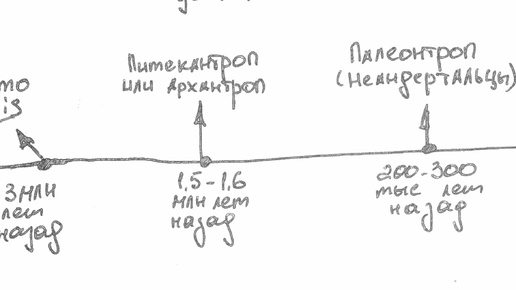 Питекантроп
или Архантроп
Палеонтроп
(Неандертальцы)
3 млн
лет
назад
1,5-1,6
млн лет
назад
200-300
тыс лет
назад